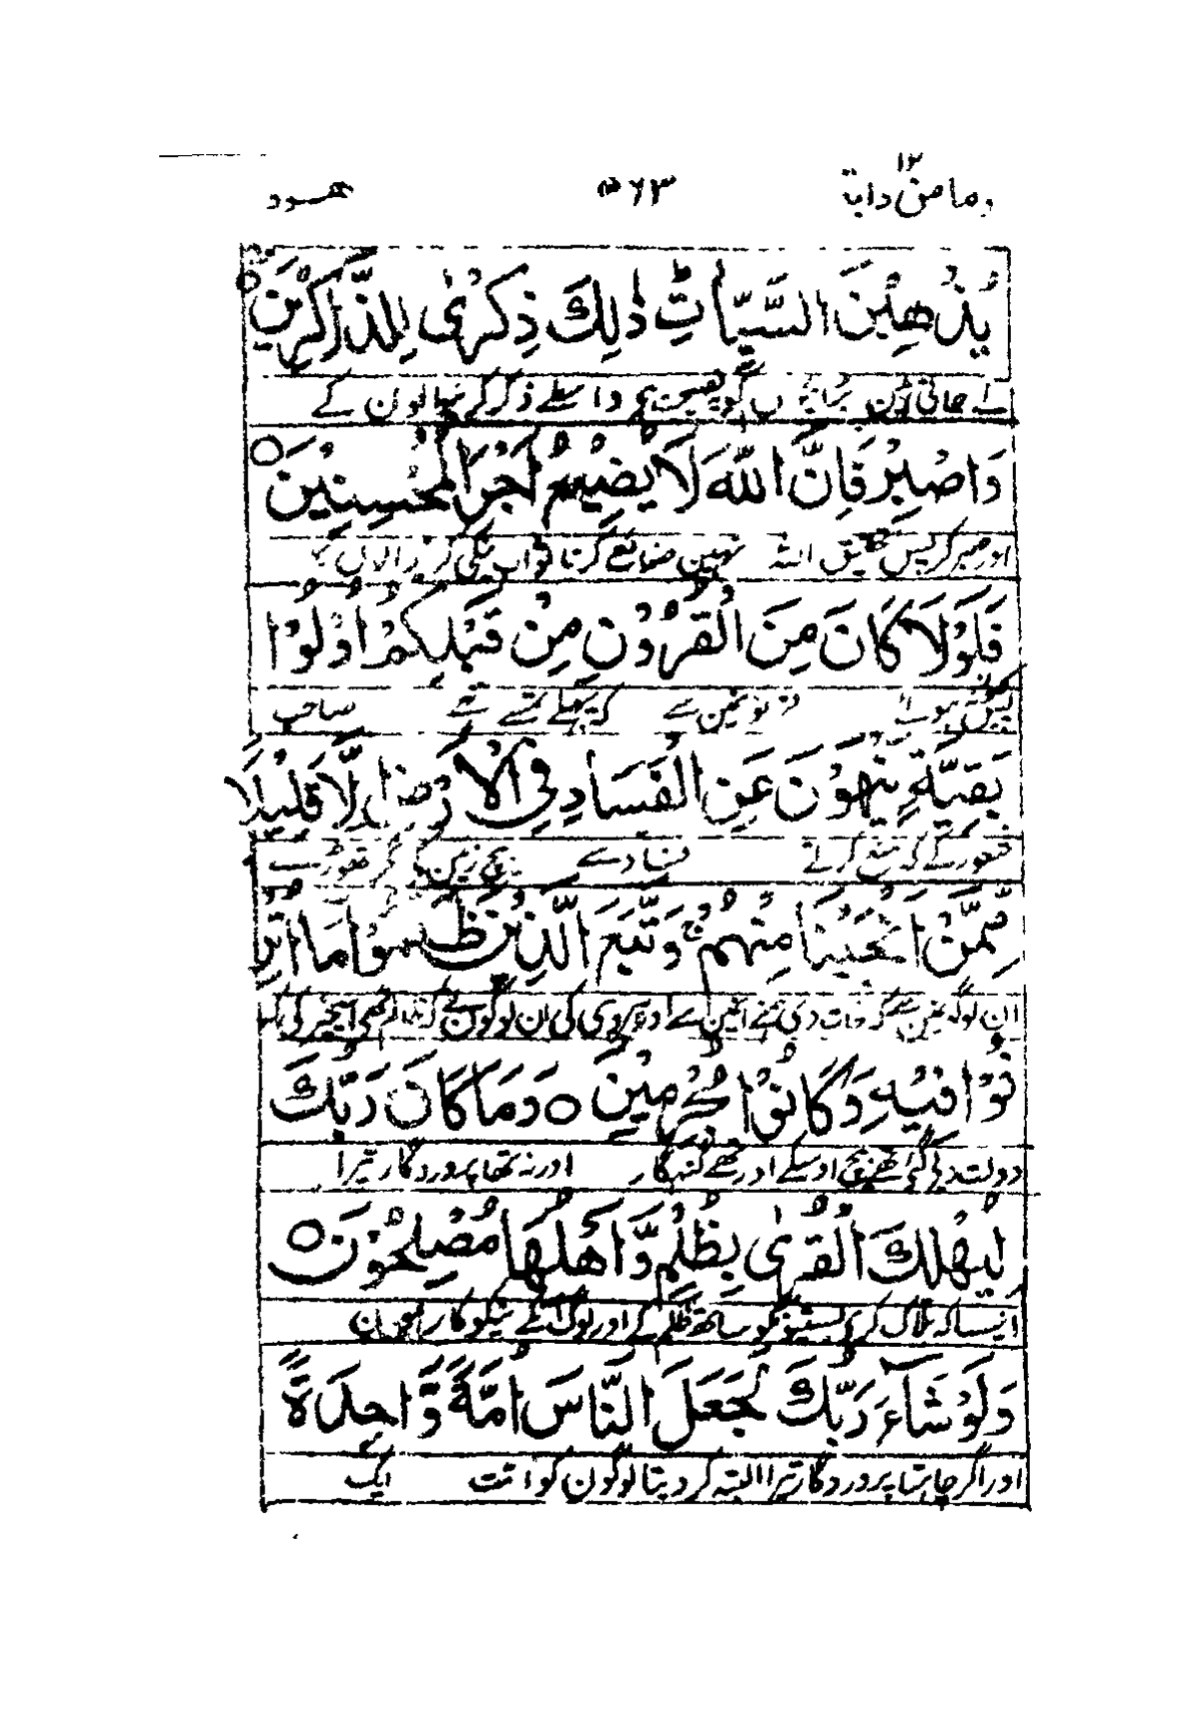 ومامن دابۃ ۱۲ ۵۶۳ ھود
يُذْهِبْنَ السَّيِّاٰتِ ذٰلِكَ ذِكْرٰى لِلذّٰكِرِيْنَ
لے جاتی ہین برائیوں کو یہ نصیحت ہے واسطے ذکر کرنیوالون کے
وَاصْبِرْ فَاِنَّ اللّٰهَ لَا يُضِيْعُ اَجْرَ الْمُحْسِنِيْنَ ○
اور صبر کر پس تحقیق اللہ نہین ضائع کرتا ثواب نیکی کرنے والوں کا
فَلَوْلَا كَانَ مِنَ الْقُرُوْنِ مِنْ قَبْلِكُمْ اُولُوْا
کیوں نہ ہوئے قرنونمین سے کہ پہلے تمسے تھے صاحب
بَقِيَّةٍ يَّنْهَوْنَ عَنِ الْفَسَادِ فِى الْاَرْضِ اِلَّا قَلِيْلًا
شعور کے کہ منع کرتے فساد سے بیچ زمین کے مگر تھوڑے
مِّمَّنْ اَنْجَيْنَا مِنْهُمْ ۚ وَتَّبَعَ الَّذِيْنَ ظَلَمُوْا مَا اُتْرِ
ان لوگونمین سے کہ نجات دی ہمنے انمین سے اور پیروی کی ان لوگون نے کہ ظالم تھے اسچیز کی کہ
فُوْا فِيْهِ وَكَانُوْا مُجْرِمِيْنَ ○ وَمَا كَانَ رَبُّكَ
دولت دیے گئے تھے بیچ اوسکے اور تھے گنہگار اور نہ تھا پروردگار تیرا
لِيُهْلِكَ الْقُرٰى بِظُلْمٍ وَّاَهْلُهَا مُصْلِحُوْنَ ○
ایسا کہ ہلاک کرے بستیونکو ساتھ ظلم کے اور لوگ انکے نیکوکار ہون
وَلَوْ شَآءَ رَبُّكَ لَجَعَلَ النَّاسَ اُمَّةً وَّاحِدَةً
اور اگر چاہتا پروردگار تیرا البتہ کر دیتا لوگون کو امت ایک